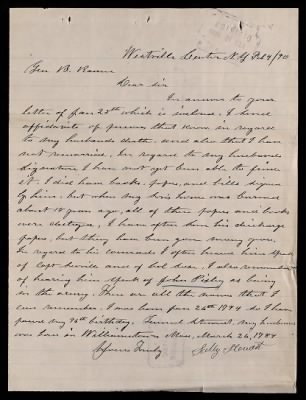 Westville Center N.Y. Feb 9/90
Gen B. Raum
Dear Sir
In answer to your
letter of Jan 23rd which is inclosed. I send
affidavits of persons that know in regard
to my husbands death, and also that I have
not remarried. In regard to my husbands
signature I have not yet been able to find
it. I did have books, papers, and bills signed
by him, but when my home was burned
about 18 years ago, all of those papers and books
were destroyed, I have often seen his discharge
paper, but they have been gone many years.
In regard to his comrads I often heard him speak
of Capt and of Col. I also remember
of hearing him speak of John Risley as being
in the army. These are all the names that I
can remember. I was born Jan 26th 1844 so I have
passed my birthday. my husband
was born in Williamstown Mass, March 26, 1844
Yours Truly,